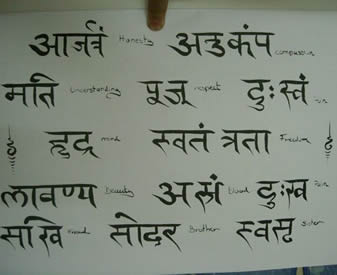 आर्जवं Honesty अनुकंप compassion
मति understanding पूज् respect दुःस्वं
हृद्र mind स्वतंत्रता Freedom
लावण्य Beauty अस्रं blood दुःख Pain
सखि Friend सोदर Brother स्वसृ sister